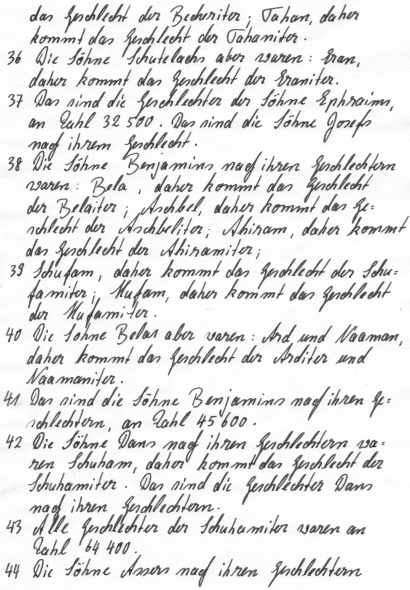 das Geschlecht der Becheriter; Tahan, daher
kommt das Geschlecht der Tahaniter.
36 Die Söhne Schutelachs aber waren: Eran,
daher kommt das Geschlecht der Eraniter.
37 Das sind die Geschlechter der Söhne Ephraims,
an Zahl 32 500. Das sind die Söhne Josefs
nach ihrem Geschlecht.
38 Die Söhne Benjamins nach ihren Geschlechtern
waren: Bela, daher kommt das Geschlecht
der Belaiter; Aschbel, daher kommt das Ge-
schlecht der Aschbeliter; Ahiram, daher kommt
das Geschlecht der Ahiramiter;
39 Schufam, daher kommt das Geschlecht der Schu-
famiter; Hufam, daher kommt das Geschlecht
der Hufamiter.
40 Die Söhne Belas aber waren: Ard und Naaman,
daher kommt das Geschlecht der Arditer und
Naamaniter.
41 Das sind die Söhne Benjamins nach ihren Ge-
schlechtern, an Zahl 45 600.
42 Die Söhne Dans nach ihren Geschlechtern wa-
ren Schuham, daher kommt das Geschlecht der
Schuhamiter. Das sind die Geschlechter Dans
nach ihren Geschlechtern.
43 Alle Geschlechter der Schuhamiter waren an
Zahl 64 400.
44 Die Söhne Assers nach ihren Geschlechtern